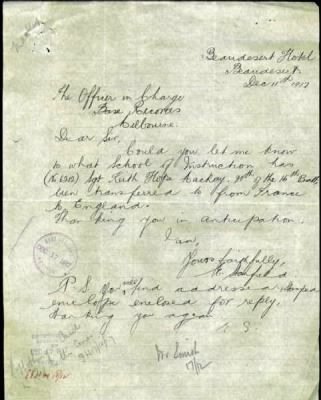 Beaudesert Hotel
Beaudesert
Dec 11th 1917
The Officer in Charge
Base Records
Melbourne.
Dear Sir,
Could you let me know
to what School of Instruction has
Sgt Keith Hope Mackay, of the Batt,
been transferred to from France
to England.
Thanking you in anticipation.
I am,
Yours faithfully,
P S You will find addressed stamped
envelope enclosed for reply.
thanking you again
Mr Smith
17/12